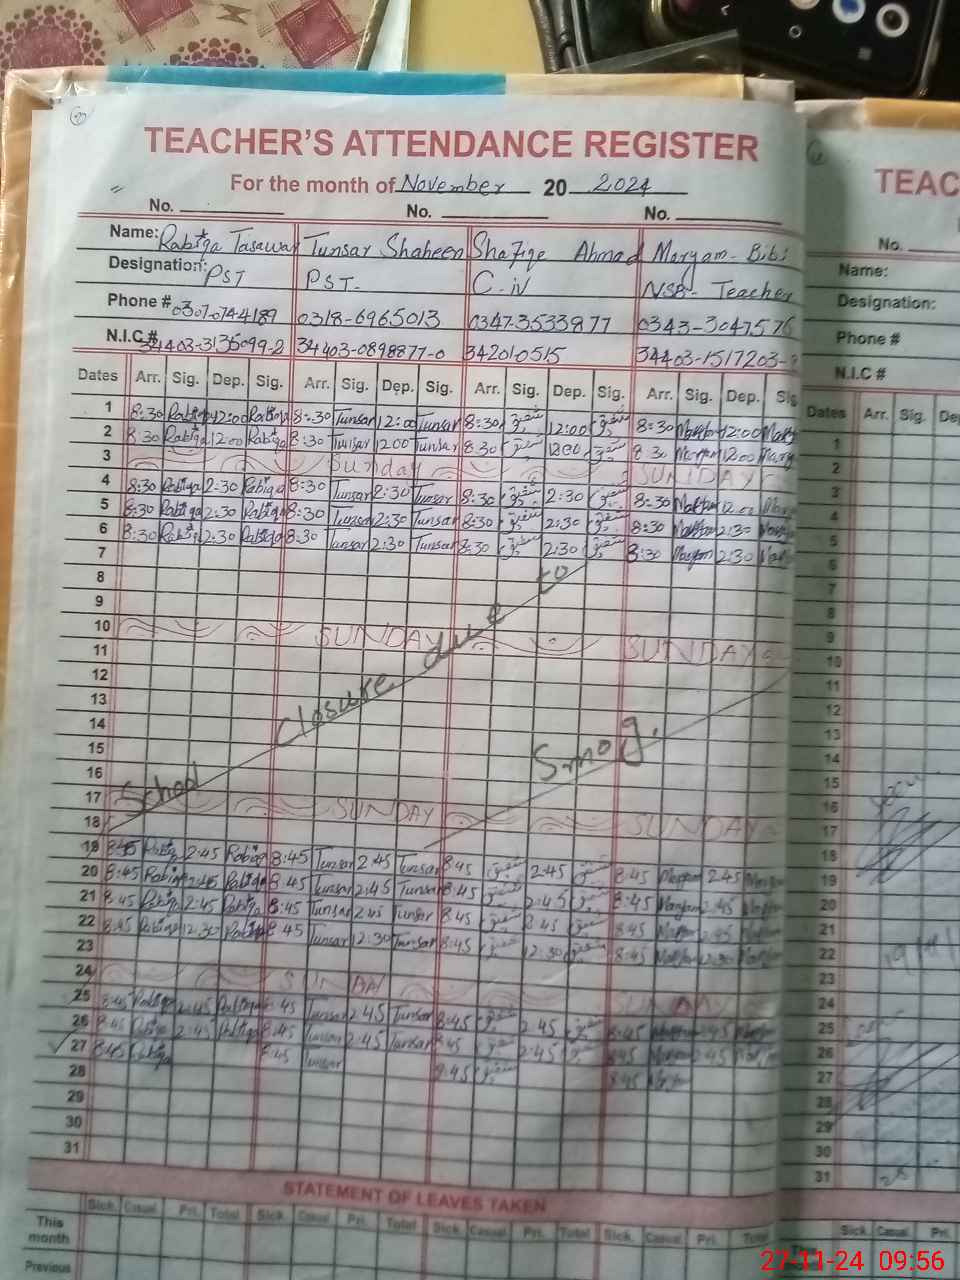 TEACHER'S ATTENDANCE REGISTER
TEAC
For the month of November 20 2024
No. No. No. No.
Name: Rabiqa Tasawar Tunsar Shaheen Shafiqe Ahmad Maryam-Bibi Name:
Designation: PST PST- C-iv NSB- Teacher Designation:
Phone # 0307-0744189 0318-6965013 0347-3533877 0343-3047576 Phone #
N.I.C # 34403-3135099-2 34403-0898877-0 342010515 34403-1517203- N.I.C #
Dates Arr. Sig. Dep. Sig. Arr. Sig. Dep. Sig. Arr. Sig. Dep. Sig. Arr. Sig. Dep. Sig Dates Arr. Sig. De
1 8:30 Rabiqa 12:00 Rabiqa 8:30 Tunsar 12:00 Tunsar 8:30 شفیق 12:00 شفیق 8:30 Maryam 12:00
2 8:30 Rabiqa 12:00 Rabiqa 8:30 Tunsar 12:00 Tunsar 8:30 شفیق 12:00 شفیق 8:30 Maryam 12:00
3 Sunday SUNDAY
4 8:30 Rabiqa 2:30 Rabiqa 8:30 Tunsar 2:30 Tunsar 8:30 شفیق 2:30 شفیق 8:30 Maryam
5 8:30 Rabiqa 2:30 Rabiqa 8:30 Tunsar 2:30 Tunsar 8:30 شفیق 2:30 شفیق 8:30 Maryam 2:30
6 8:30 Rabiqa 2:30 Rabiqa 8:30 Tunsar 2:30 Tunsar 8:30 شفیق 2:30 شفیق 8:30 Maryam 2:30
7
8
9
10 SUNDAY SUNDAY
11
12
13
14
15
16
17 SUNDAY SUNDAY
18
School Closure due to
Smog.
19 8:45 Rabiqa 2:45 Rabiqa 8:45 Tunsar 2:45 Tunsar 8:45 شفیق 2:45 شفیق 8:45 Maryam 2:45 Maryam
20 8:45 Rabiqa 2:45 Rabiqa 8:45 Tunsar 2:45 Tunsar 8:45 شفیق 2:45 شفیق 8:45 Maryam 2:45
21 8:45 Rabiqa 2:45 Rabiqa 8:45 Tunsar 2:45 Tunsar 8:45 شفیق 2:45 شفیق 8:45 Maryam 2:45
22 8:45 Rabiqa 12:30 Rabiqa 8:45 Tunsar 12:30 Tunsar 8:45 شفیق 12:30 شفیق 8:45 Maryam 12:30
23
24 SUNDAY SUNDAY
25 8:45 Rabiqa 2:45 Rabiqa 8:45 Tunsar 2:45 Tunsar 8:45 شفیق 2:45 شفیق 8:45 Maryam 2:45
26 8:45 Rabiqa 2:45 Rabiqa 8:45 Tunsar 2:45 Tunsar 8:45 شفیق 2:45 شفیق 8:45 Maryam 2:45
27 8:45 Rabiqa 8:45 Tunsar 8:45 شفیق 8:45 Maryam
28
29
30
31
1
2
3
4
5
6
7
8
9
10
11
12
13
14
15
16
17
18
19
20
21
22
23
24
25
26
27
28
29
30
31
STATEMENT OF LEAVES TAKEN
Sick. Casual. Pri. Total Sick. Casual. Pri. Total Sick. Casual. Pri. Total Sick. Casual. Pri. Total Sick. Casual. Pri.
This month
Previous
27-11-24 09:56